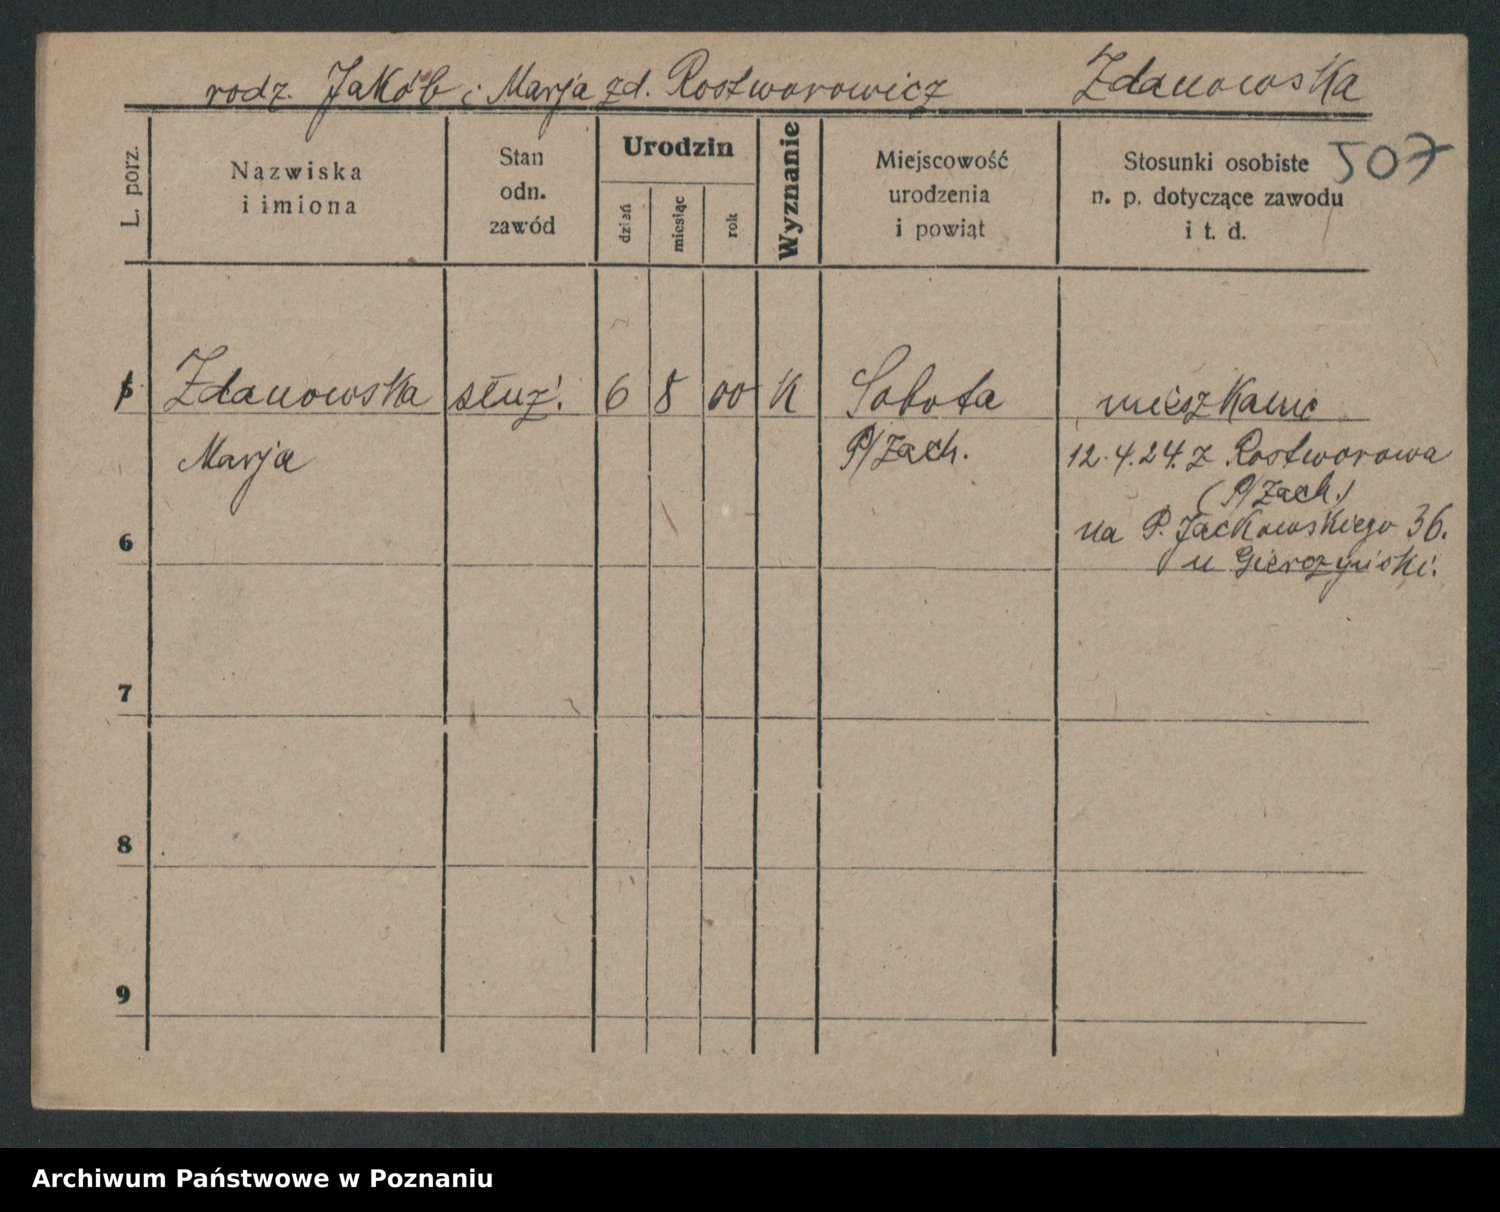 rodz. Jakób i Marja zd. Rostworowicz Zdanowska
507
L. porz.
Nazwiska
i imiona
Stan
odn.
zawód
Urodzin
dzień
miesiąc
rok
Wyznanie
Miejscowość
urodzenia
i powiąt
Stosunki osobiste
n. p. dotyczące zawodu
i t. d.
5 Zdanowska służ. 6 8 00 K Sobota
Marja P/Zach.
12.4.24. z Rostworowa
(P/Zach.)
na P. Jackowskiego 36.
u
6
7
8
9
Archiwum Państwowe w Poznaniu